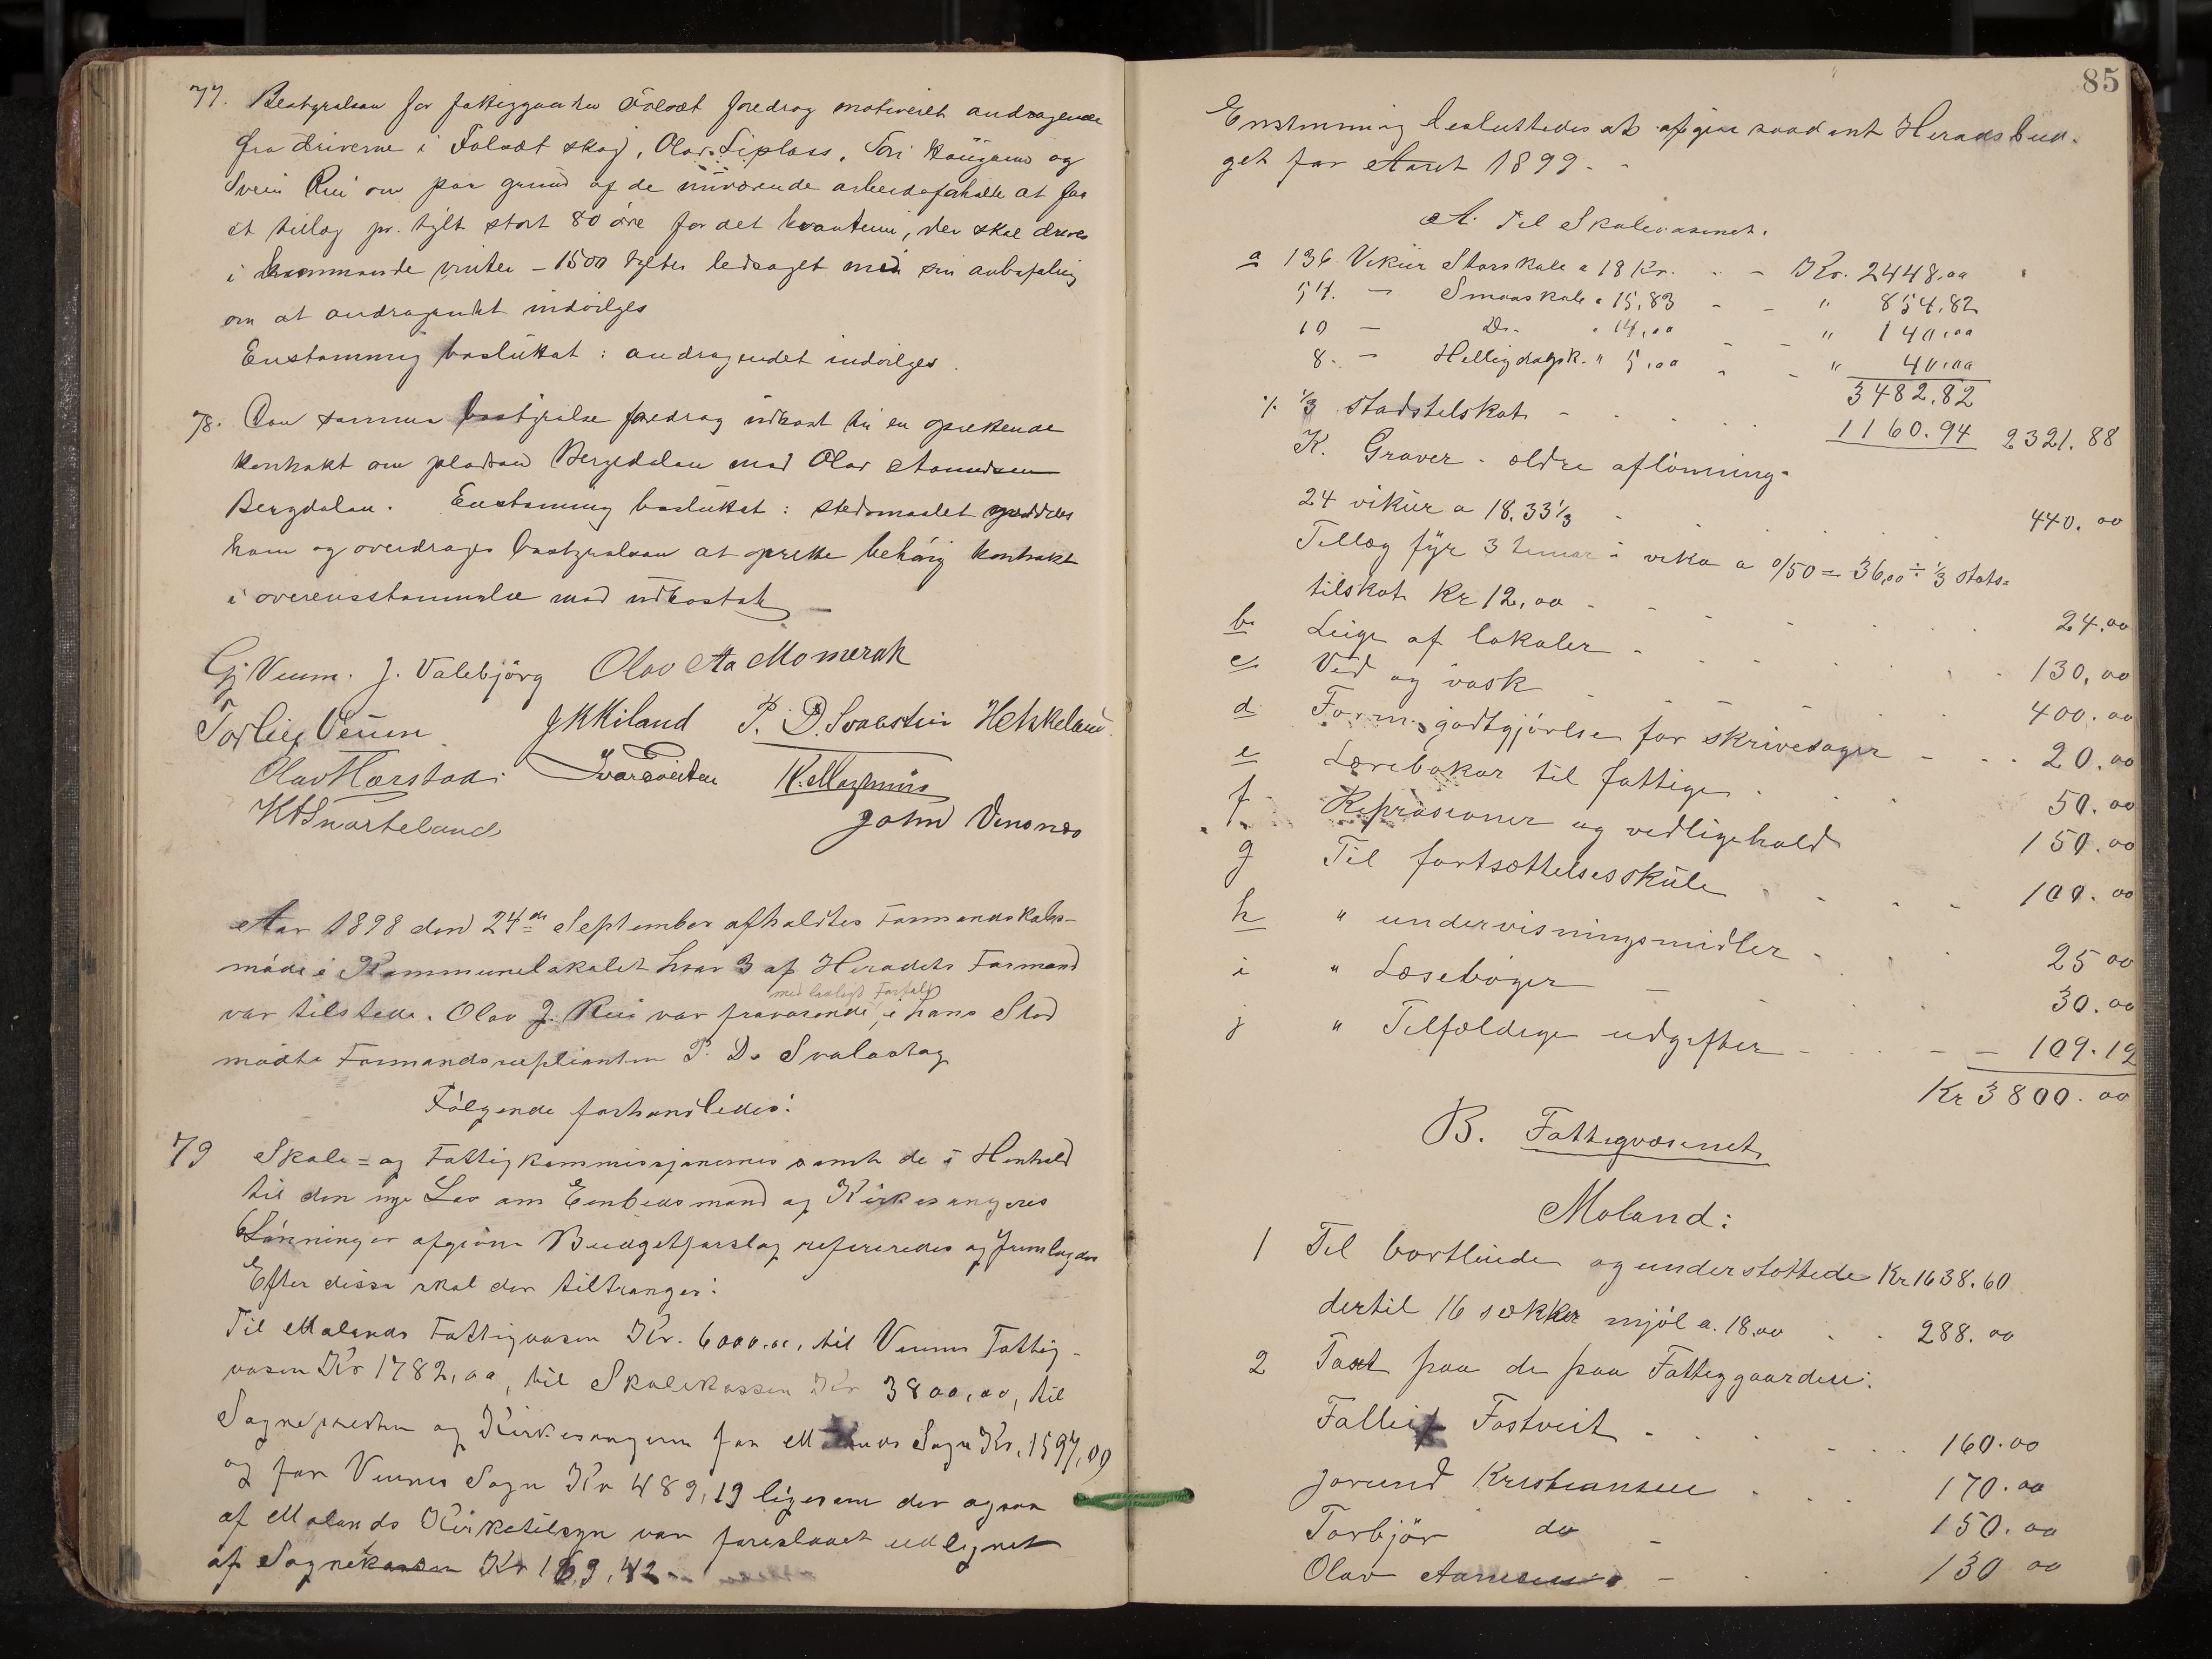 77. Bestyrelsen for fattiggaarden Folsæt foredrog motiveret andragende
fra driverne i Folsæt skog, Olav Liplass, Tori Haugann og
Svein Rui om paa grund af de nuværende arbeidsforholde at faa
et tillæg pr. tylt stort 80 øre for det kvantum, der skal drives
i kommende vinter – 1500 tylter ledsaget med sin anbefaling
om at andragendet indvilges
Enstemmig besluttet: andragendet indvilges.
78. Den samme bestyrelse foredrog udkast til en oprettende
kontrakt om pladsen Bergedalen med Olav Aamundsen
Bergdalen. Enstemmig besluttet: stedsmaalet
ham og overdrages bestyrelsen at oprette behörig kontrakt
i overensstemmelse med udkastet
Gj Veum. J. Valebjörg Olav Aa Momerak
Torleif Veum J K Kiland P. D. Svalastein H Askeland
Olav Hærstad K. Magnus
K A Snarteland John Vensnes
Aar 1898 den 24de September afholdtes Formandskabs-
möde i Kommunelokalet hvor 3 af Heradets Formænd
med lovligt Forfald
var tilstede. Olav J. Rui var fraværende, i hans Sted
mödte Formandssuplianten P. D. Svalastog
Fölgende forhandledes:
79 Skole- og Fattigkommissjonernes samt de i Henhold
til den nye Lov om Embedsmænd og Kirkesangeres
Lönninger afgivne Budgetforslag refereredes og fremlagdes
Efter disse skal der tiltranges:
Til Molands Fattigvæsen Kr. 6000.00, til Veums Fattig-
væsen Kr 1782,00, til Skolekassen Kr 3800,00, til
Sognepresten og Kirkesangeren for Molands Sogn Kr. 1597,09
og for Veums Sogn Kr 489,19 ligesom der ogsaa
af Molands Kirketilsyn var foreslaaet udlignet
af Sognekassen Kr 169,42
85
Enstemmig besluttedes at afgive saadant Heradsbud-
get for Aaret 1899.
A. Til Skolevæsenet.
a 136 Vikur Storskole a 18 Kr. Kr. 2448.00
54. — Smaaskole a 15,83 " 854,82
10 — Do. a 14,00 " 140,00
8. — Helligdagsk. " 5,00 " 40,00
3482,82
÷ 1/3 stadstilskot 1160.94 2321.88
K. Graver - ældre aflönning-
24 vikur a 18.33 1/3 440.00
Tillæg fyr 3 timar i veka a 0/50 = 36,00 ÷ 1/3 stats-
tilskot Kr 12,00 24.00
b. Leige af lokaler 130,00
c. Ved og vask 400.00
d. Form. godtgjörelse for skrivesager 20.00
e Lærebøkar til fattige 50.00
f. Reprasioner og vedligehold 150.00
g Til fortsættelsesskule 100.00
h " undervisningsmidler 25 00
i " Læsebøger 30.00
j " Tilfældige udgifter 109.12
Kr 3800.00
B. Fattigvæsenet
Moland:
1 Til bortleiede og understøttede Kr 1638.60
dertil 16 sækker mjöl a. 18.00 288.00
2 Taxt paa de paa Fattiggaarden:
Falleif Fostveit 160.00
Jorund Kristiansen 170.00
Torbjör do 150.00
Olav Aamundsen 130 00